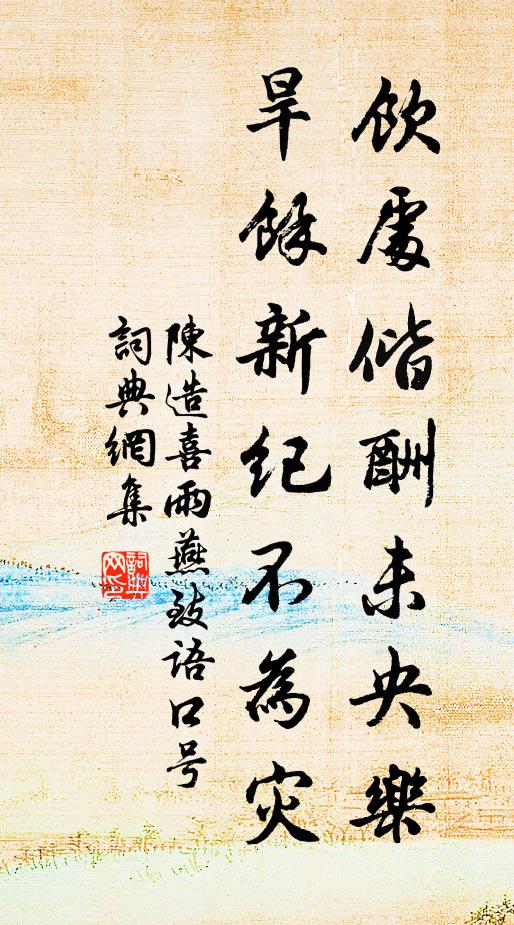 飲處偕酬未央樂
旱餘新紀不為灾
陳造喜雨燕致语口号
詞典網集